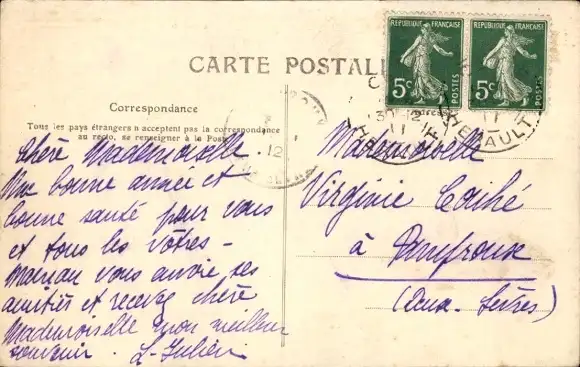 REPUBLIQUE FRANÇAISE
REPUBLIQUE FRANÇAISE
5c POSTES
5c POSTES
CARTE POSTALE
HERAULT
30-12
11
12
Correspondance
Tous les pays étrangers n'acceptent pas la correspondance
au recto, se renseigner à la Poste
Chère Mademoiselle
Une bonne année et
bonne santé pour vous
et tous les vôtres -
Maman vous envoie ses
amitiés et recevez chère
Mademoiselle mon meilleur
souvenir. L. Julien
Mademoiselle
Virginie
à Pamproux
(Deux-Sèvres)